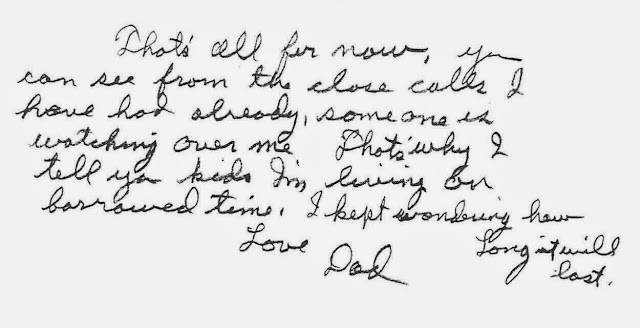 That's all for now, ya
can see from the close calls I
have had already, someone is
watching over me That's why I
tell ya kids I'm living on
borrowed time. I kept wondering how
Love Long it will
Dad last.